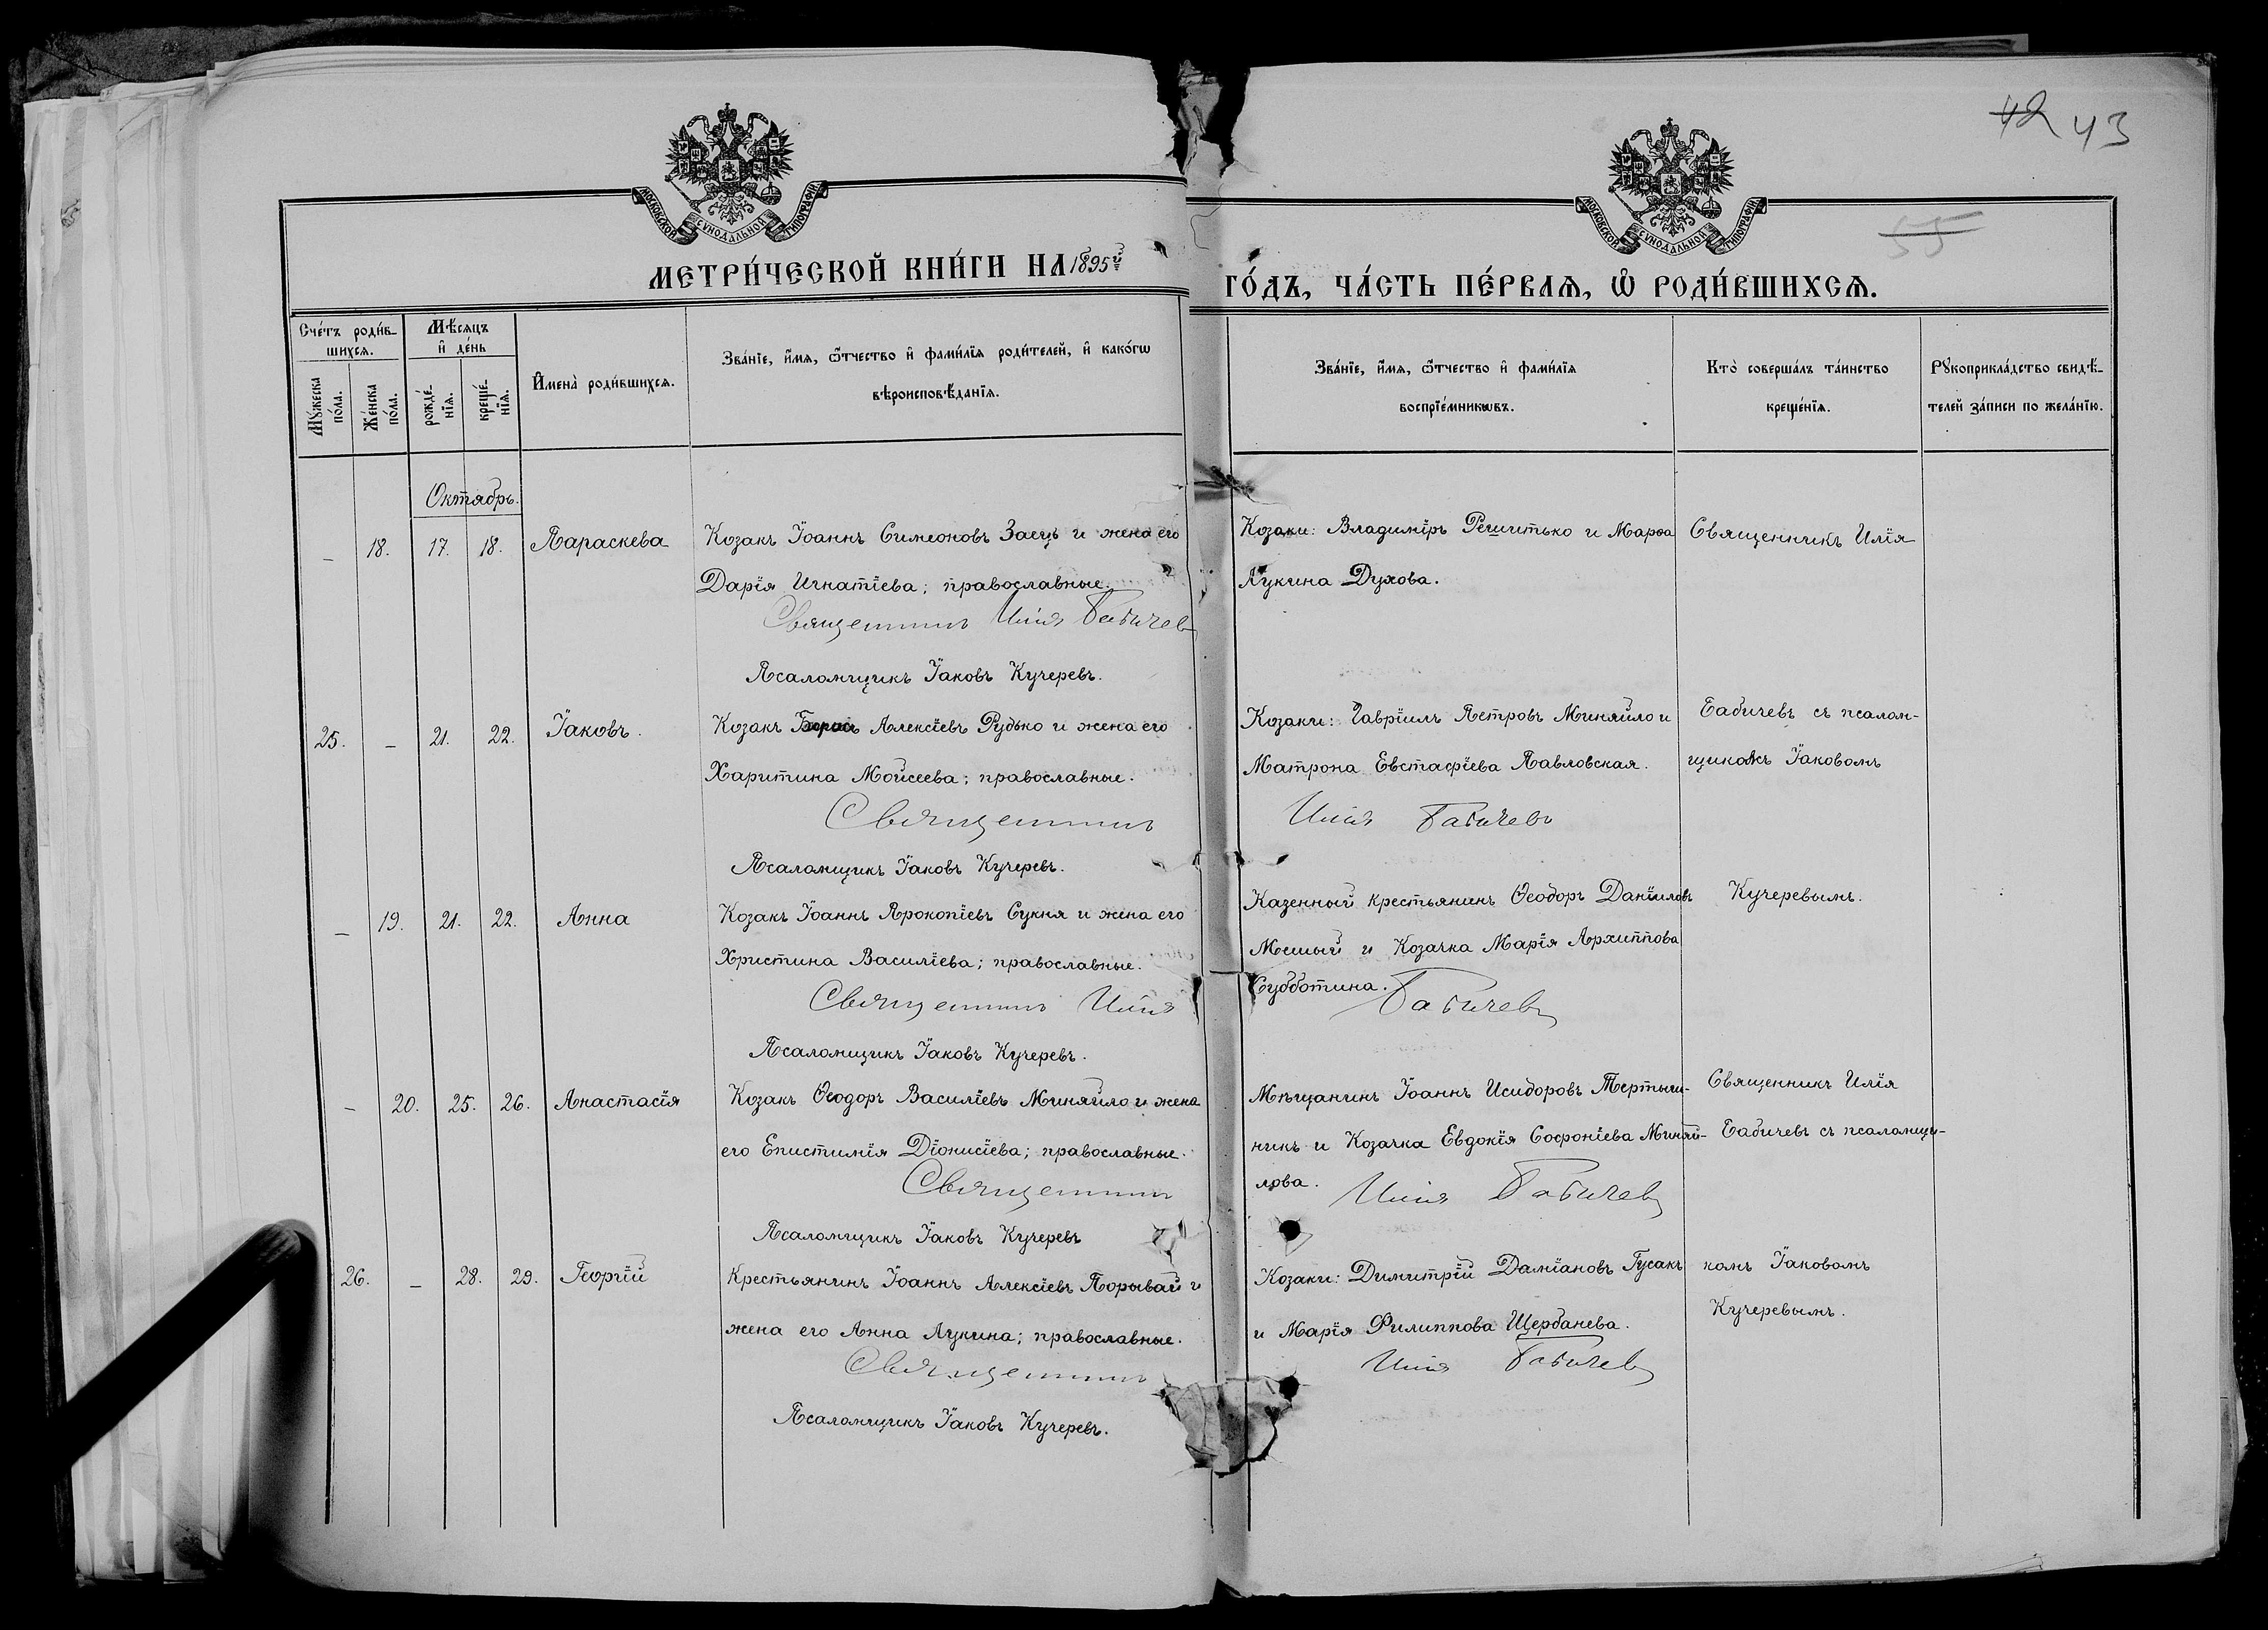 42 43
МОСКОВСКОЙ СУНОДАЛЬНОЙ ТИПОГРАФІИ
МОСКОВСКОЙ СУНОДАЛЬНОЙ ТИПОГРАФІИ
55
МЕТРИ́ЧЕСКОЙ КНИ́ГИ НА 1895й ГО́ДЪ, ЧА́СТЬ ПЕ́РВАѦ, Ѡ҆ РОДИ́ВШИХСѦ.
Сче́тъ роди́в-
шихсѧ.
Мꙋ́жеска
по́ла.
Же́нска
по́ла.
Мѣ́сѧцъ
и҆ де́нь
рожде́-
нїѧ.
креще́-
нїѧ.
И҆мена̀ роди́вшихсѧ.
Зва́нїе, и҆́мѧ, ѻ҆́тчество и҆ фами́лїѧ роди́телей, и҆ како́гѡ
вѣроисповѣ́данїѧ.
Зва́нїе, и҆́мѧ, ѻ҆́тчество и҆ фами́лїѧ
воспрїе́мникѡвъ.
Кто̀ соверша́лъ та́инство
креще́нїѧ.
Рꙋкоприкла́дство свидѣ́-
телей за́писи по жела́нїю.
Октябрь.
– 18. 17. 18. Параскева
Козакъ Іоаннъ Симеоновъ Заецъ и жена его
Дарія Игнатіева; православные.
Священникъ Илія Бабичевъ
Псаломщикъ Іаковъ Кучеревъ.
Козаки: Владиміръ Решитько и Марѳа
Лукина Духова.
Священникъ Илія
25. – 21. 22. Іаковъ.
Козакъ Алексіевъ Рудько и жена его
Харитина Мойсеева; православные.
Священникъ Илія Бабичевъ
Псаломщикъ Іаковъ Кучеревъ.
Козаки: Гавріилъ Петровъ Миняйло и
Матрона Евстафіева Павловская.
Бабичевъ съ псалом-
щикомъ Іаковомъ
– 19. 21. 22. Анна
Козакъ Іоаннъ Прокопіевъ Сукня и жена его
Христина Василіева; православные.
Священникъ Илія Бабичевъ
Псаломщикъ Іаковъ Кучеревъ.
Казенный крестьянинъ Ѳеодоръ Даніиловъ
и Козачка Марія Архиппова
Субботина.
Кучеревымъ.
– 20. 25. 26. Анастасія
Козакъ Ѳеодоръ Василіевъ Миняйло и жена
его Епистимія Діонисіева; православные.
Священникъ Илія Бабичевъ
Псаломщикъ Іаковъ Кучеревъ
Мѣщанинъ Іоаннъ Исидоровъ Тертыш-
никъ и Козачка Евдокія Софроніева Миняй-
лова.
Священникъ Илія
Бабичевъ съ псаломщи-
26. – 28. 29. Георгій
Крестьянинъ Іоаннъ Алексіевъ Порывай и
жена его Анна Лукина; православные.
Священникъ Илія Бабичевъ
Псаломщикъ Іаковъ Кучеревъ.
Козаки: Димитрій Даміановъ Гусакъ
и Марія Филиппова Щербанева.
комъ Іаковомъ
Кучеревымъ.